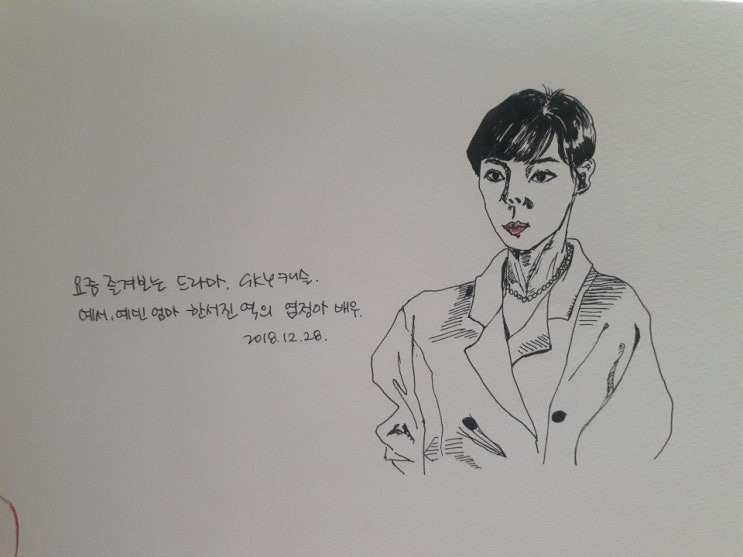 요즘 즐겨보는 드라마. SKY캐슬.
예서, 예빈 엄마 한서진 역의 염정아 배우.
2018.12.28.